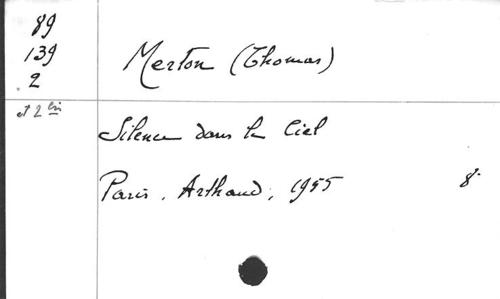 89
139
2
et 2 bis
Merton (Thomas)
Silence dans le Ciel
Paris, Arthaud, 1955 8°